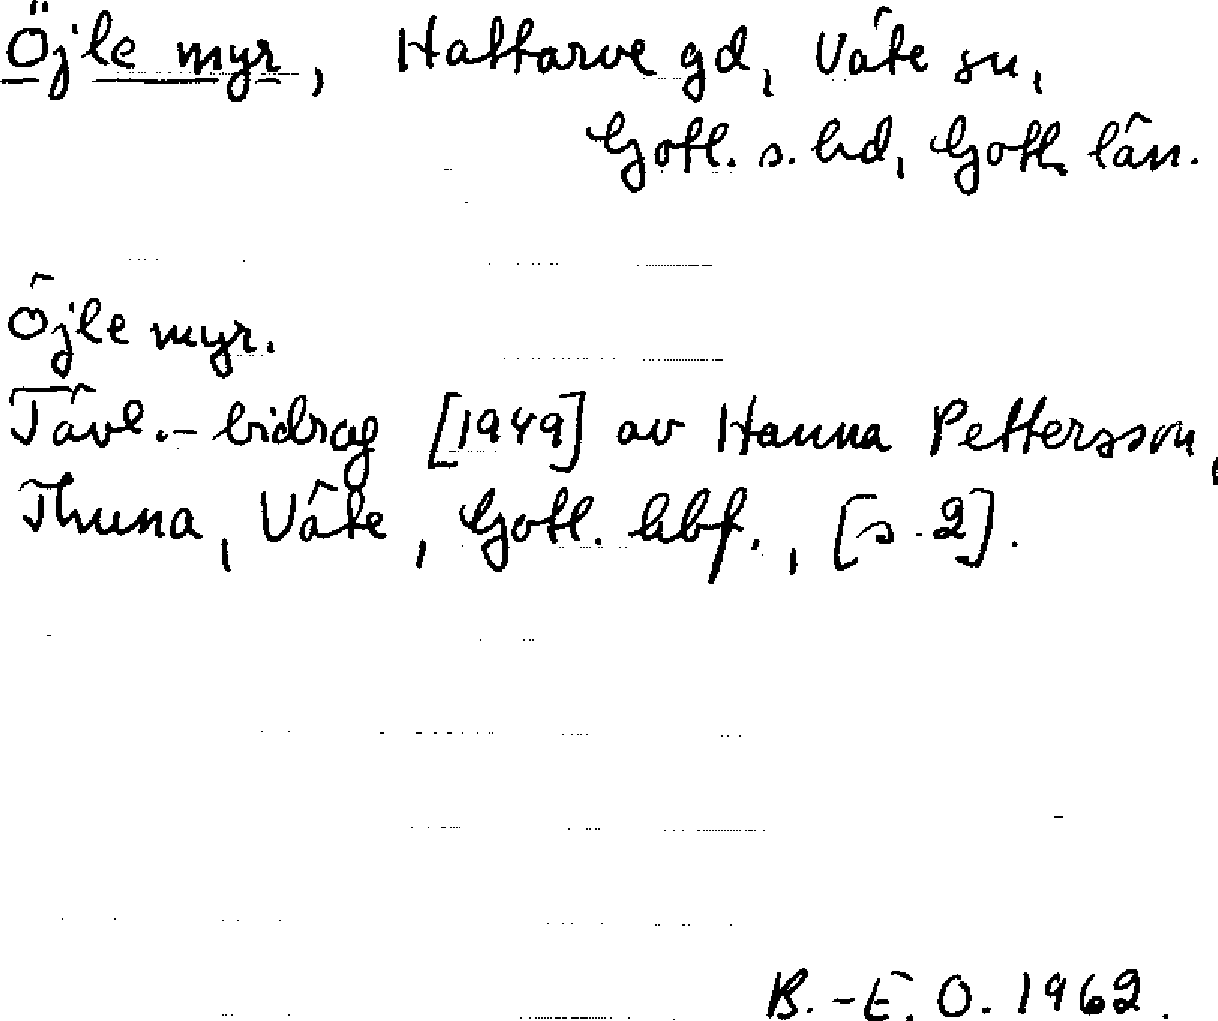 Öjle myr, Hattarve gd, Väte sn,
Gotl. s. hd, Gotl. län.
Öjle myr.
Tävl.-bidrag [1949] av Hanna Pettersson,
Thuna, Väte, Gotl. hbf., [s. 2].
B.-E. O. 1962.